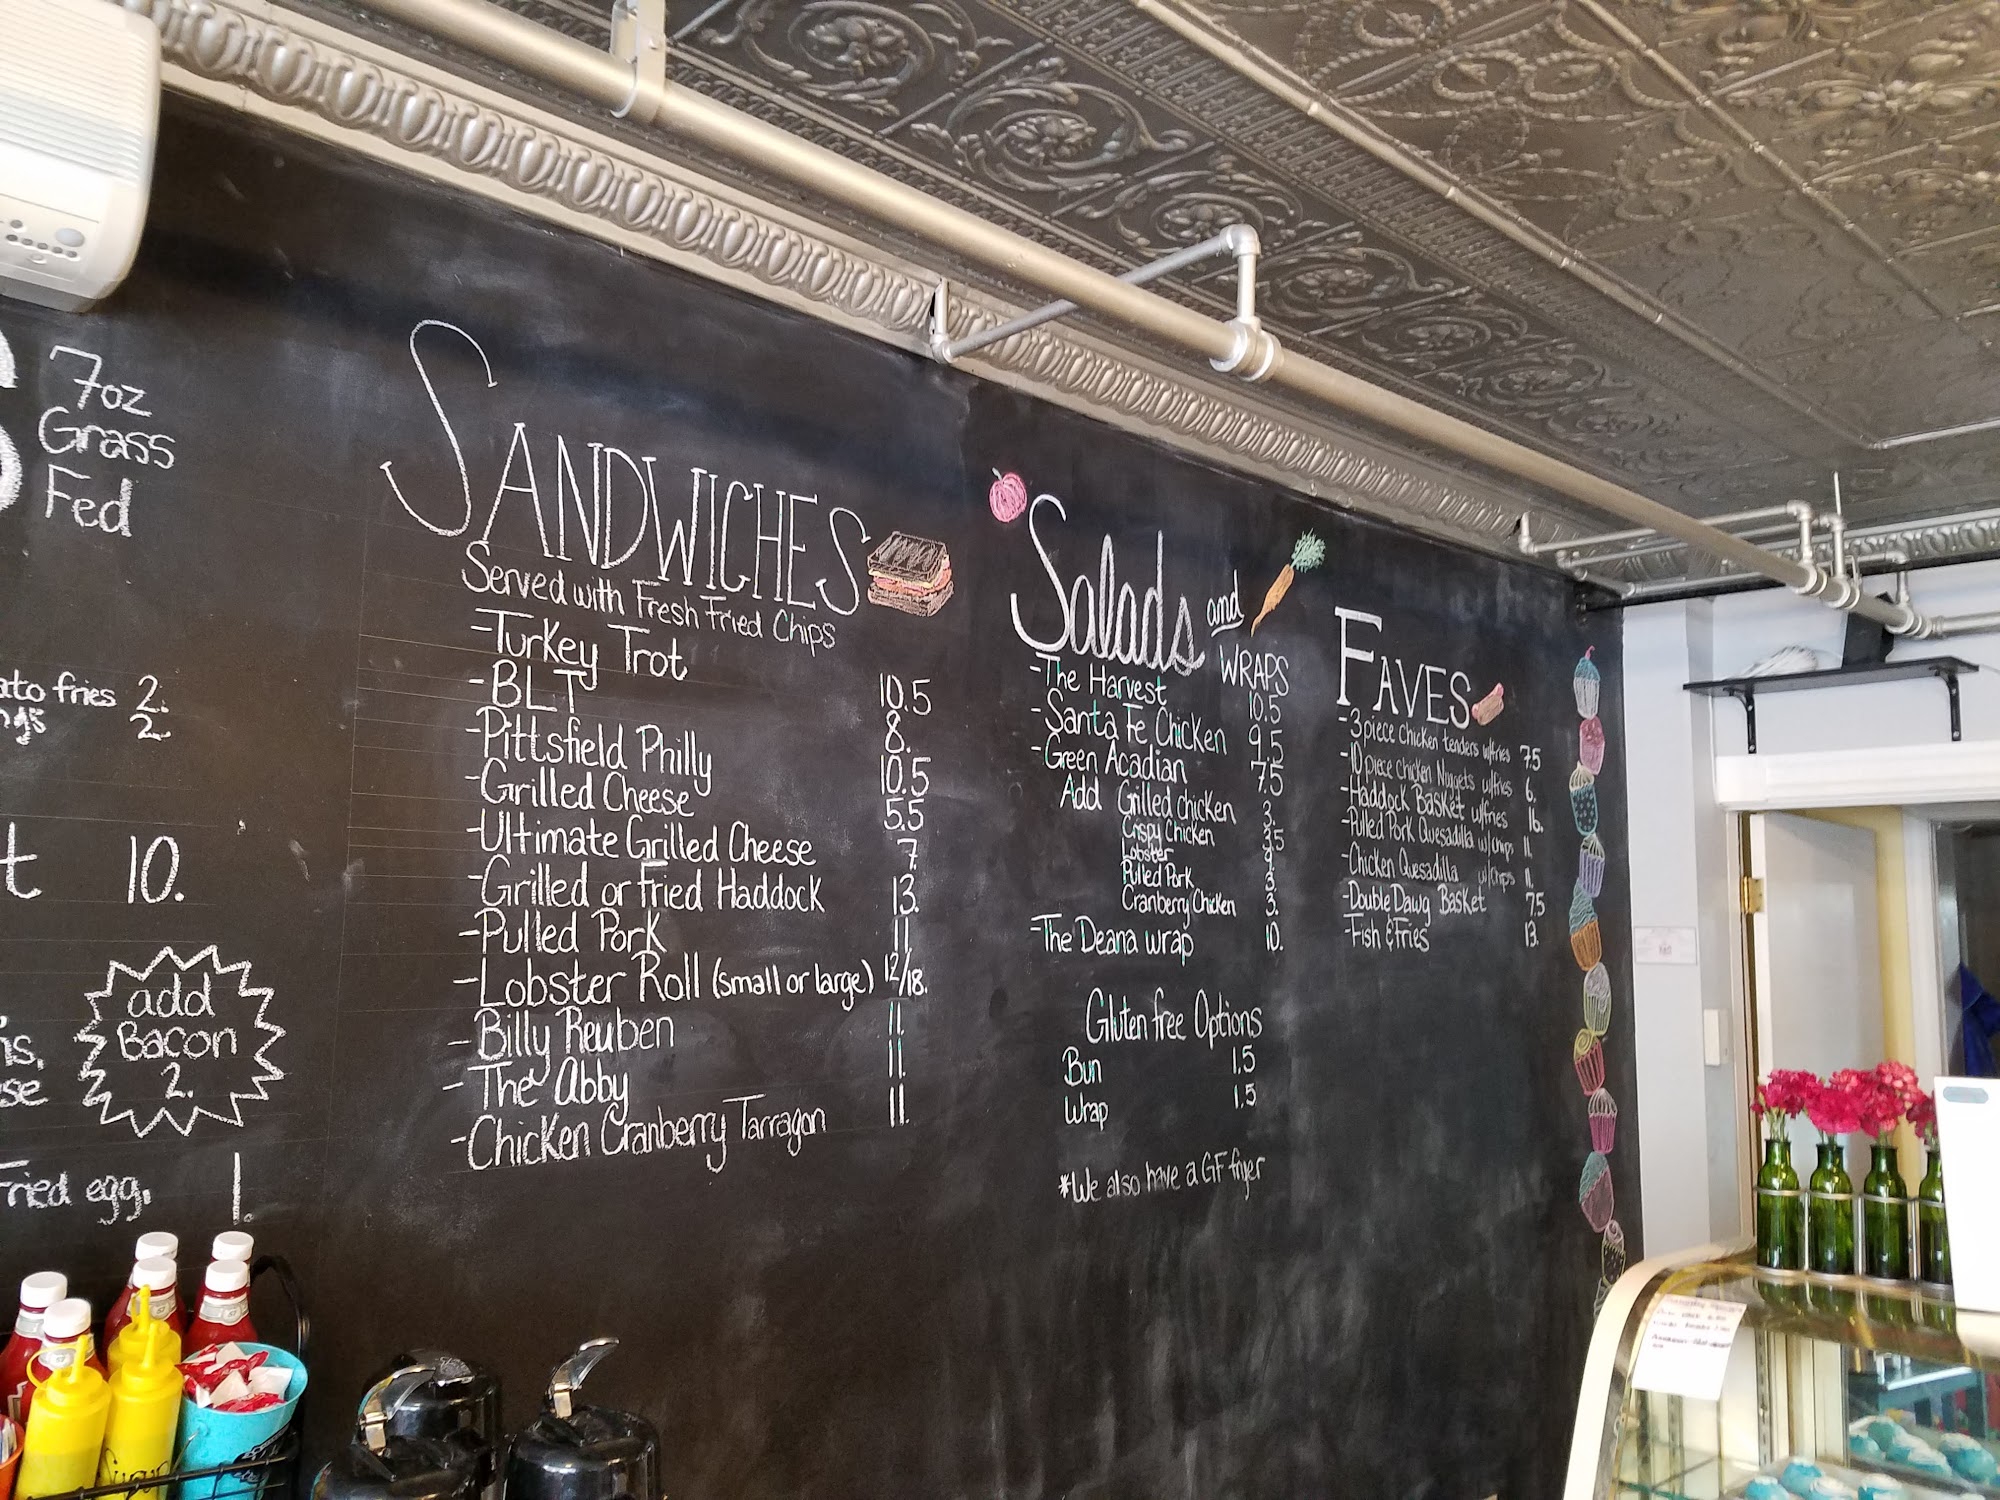 7oz
Grass
Fed
fries 2.
2.
10.
add
Bacon
2.
Fried egg, 1.
SANDWICHES
Served with Fresh Fried Chips
-Turkey Trot 10.5
-BLT 8.
-Pittsfield Philly 10.5
-Grilled Cheese 5.5
-Ultimate Grilled Cheese 7.
-Grilled or Fried Haddock 13.
-Pulled Pork 11.
-Lobster Roll (small or large) 12/18.
-Billy Reuben 11.
-The Abby 11.
-Chicken Cranberry Tarragon 11.
Salads and WRAPS
-The Harvest 10.5
-Santa Fe Chicken 9.5
-Green Acadian 7.5
Add Grilled chicken 3.
Crispy Chicken 3.5
Lobster 9.
Pulled Pork 3.
Cranberry Chicken 3.
-The Deana wrap 10.
Gluten free Options
Bun 1.5
Wrap 1.5
*We also have a GF fryer
FAVES
-3 piece chicken tenders w/fries 7.5
-10 piece chicken Nuggets w/fries 6.
-Haddock Basket w/fries 16.
-Pulled Pork Quesadilla w/chips 11.
-Chicken Quesadilla w/chips 11.
-Double Dawg Basket 7.5
-Fish & Fries 13.